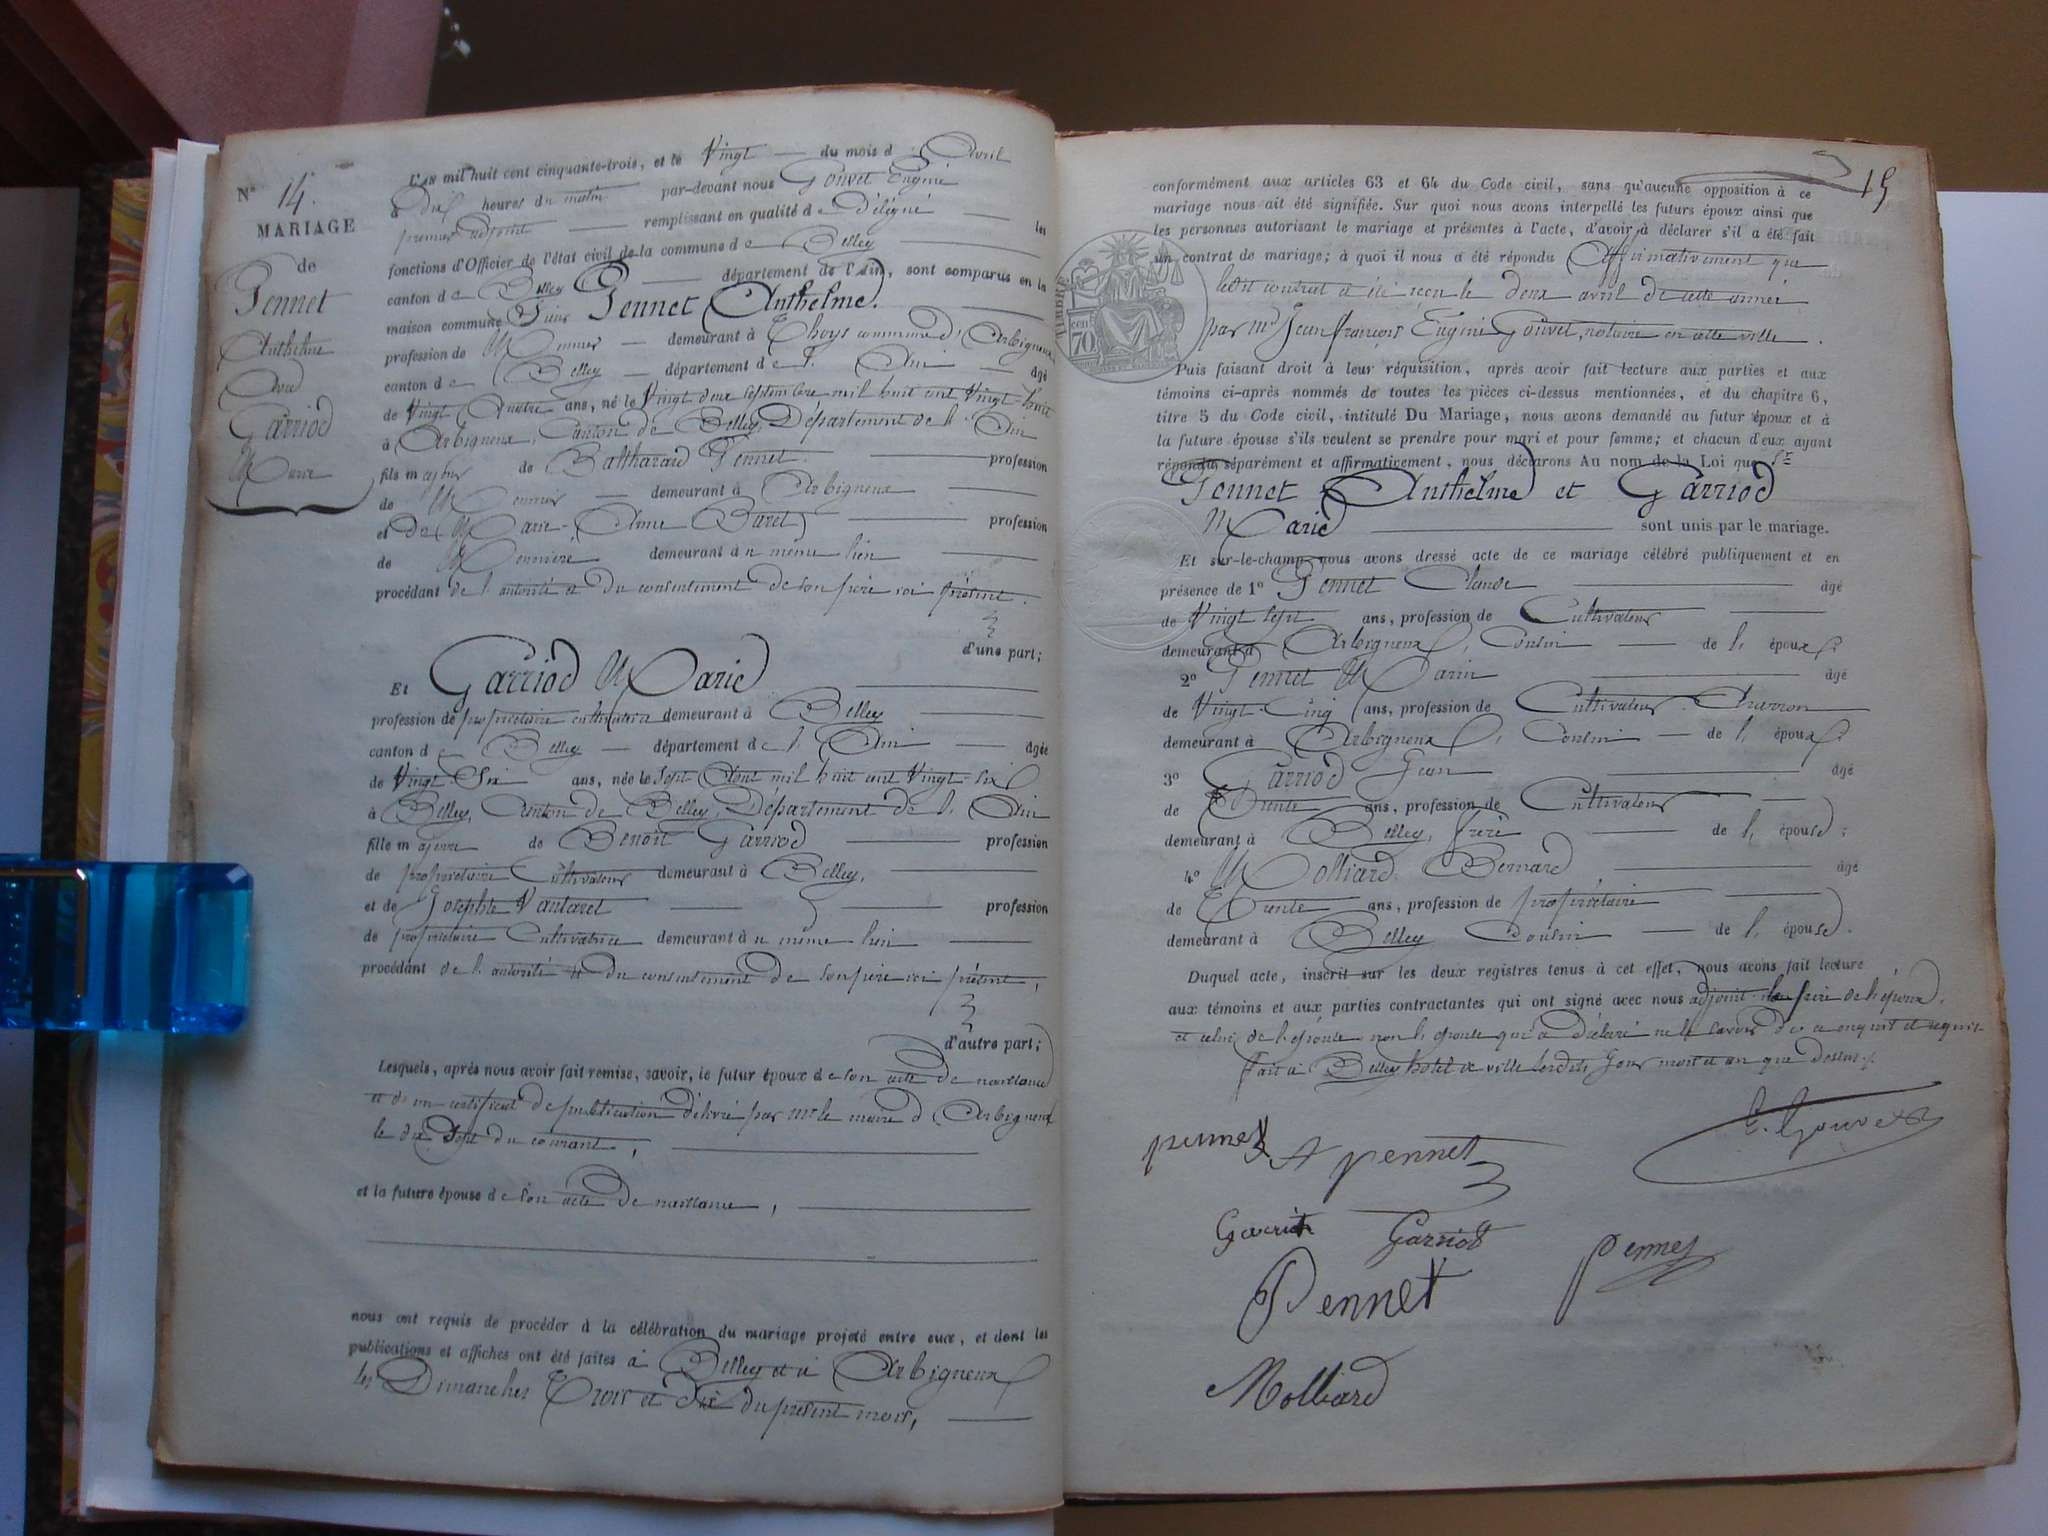 N° 14.
MARIAGE
de
Pennet
Anthelme
Avec
Garriod
Marie
L'AN mil huit cent cinquante-trois, et le Vingt du mois d'Avril
à Dix heures du matin par-devant nous Gouvet Eugène
premier adjoint remplissant en qualité de Délégué les
fonctions d'Officier de l'état civil de la commune de Belley
canton de Belley département de l'Ain, sont comparus en la
maison commune Sieur Pennet Anthelme.
profession de Meunier demeurant à Thoys commune d'Arbignieux
canton de Belley département de l'Ain âgé
de Vingt Quatre ans, né le Vingt deux septembre mil huit cent Vingt-huit
à Arbignieux, Canton de Belley, Département de l'Ain
fils majeur de Balthazard Pennet profession
de Meunier demeurant à Arbignieux
et de Marie-Aimée Buret profession
de Meunière demeurant au même lieu
procédant de l'autorité et du consentement de son père ici présent.
d'une part;
Et Garriod Marie
profession de propriétaire cultivatrice demeurant à Belley
canton de Belley département de l'Ain âgée
de Vingt-Six ans, née le Sept Août mil huit cent Vingt-six
à Belley, Canton de Belley, Département de l'Ain
fille majeure de Benoît Garriod profession
de propriétaire Cultivateur demeurant à Belley,
et de Josephte Vautaret profession
de propriétaire Cultivatrice demeurant au même lieu
procédant de l'autorité et du consentement de son père ici présent,
d'autre part;
Lesquels, après nous avoir fait remise, savoir, le futur époux de son acte de naissance
et d'un certificat de publication délivré par Mr le maire d'Arbignieux
le dix Sept du courant,
et la future épouse de son acte de naissance,
nous ont requis de procéder à la célébration du mariage projeté entre eux, et dont les
publications et affiches ont été faites à Belley et à Arbignieux
les Dimanches Trois et Dix du présent mois,
15
conformément aux articles 63 et 64 du Code civil, sans qu'aucune opposition à ce
mariage nous ait été signifiée. Sur quoi nous avons interpellé les futurs époux ainsi que
les personnes autorisant le mariage et présentes à l'acte, d'avoir à déclarer s'il a été fait
un contrat de mariage; à quoi il nous a été répondu Affirmativement que
ledit contrat a été reçu le deux avril de cette année
par Me Jean françois Eugène Gouvet, notaire en cette ville.
TIMBRE
70 cent
Puis faisant droit à leur réquisition, après avoir fait lecture aux parties et aux
témoins ci-après nommés de toutes les pièces ci-dessus mentionnées, et du chapitre 6,
titre 5 du Code civil, intitulé Du Mariage, nous avons demandé au futur époux et à
la future épouse s'ils veulent se prendre pour mari et pour femme; et chacun d'eux ayant
répondu séparément et affirmativement, nous déclarons Au nom de la Loi que Sr
Pennet Anthelme et Garriod
Marie sont unis par le mariage.
Et sur-le-champ nous avons dressé acte de ce mariage célébré publiquement et en
présence de 1° Pennet Claude âgé
de Vingt Sept ans, profession de Cultivateur
demeurant à Arbignieux, Cousin de l'époux.
2° Pennet Marin âgé
de Vingt-Cinq ans, profession de Cultivateur-Charron
demeurant à Arbignieux, Cousin de l'époux.
3° Garriod Jean âgé
de Trente ans, profession de Cultivateur
demeurant à Belley, frère de l'épouse;
4° Molliard Bernard âgé
de Trente ans, profession de propriétaire
demeurant à Belley Cousin de l'épouse.
Duquel acte, inscrit sur les deux registres tenus à cet effet, nous avons fait lecture
aux témoins et aux parties contractantes qui ont signé avec nous adjoint, le père de l'époux,
et celui de l'épouse non l'épouse qui a déclaré ne le savoir de ce enquise et requise
fait à Belley hotel de ville lesdits Jour mois et an que dessus.
E. Gouvet
pennet A pennet
Garriod Garriod
Pennet pennet
Molliard